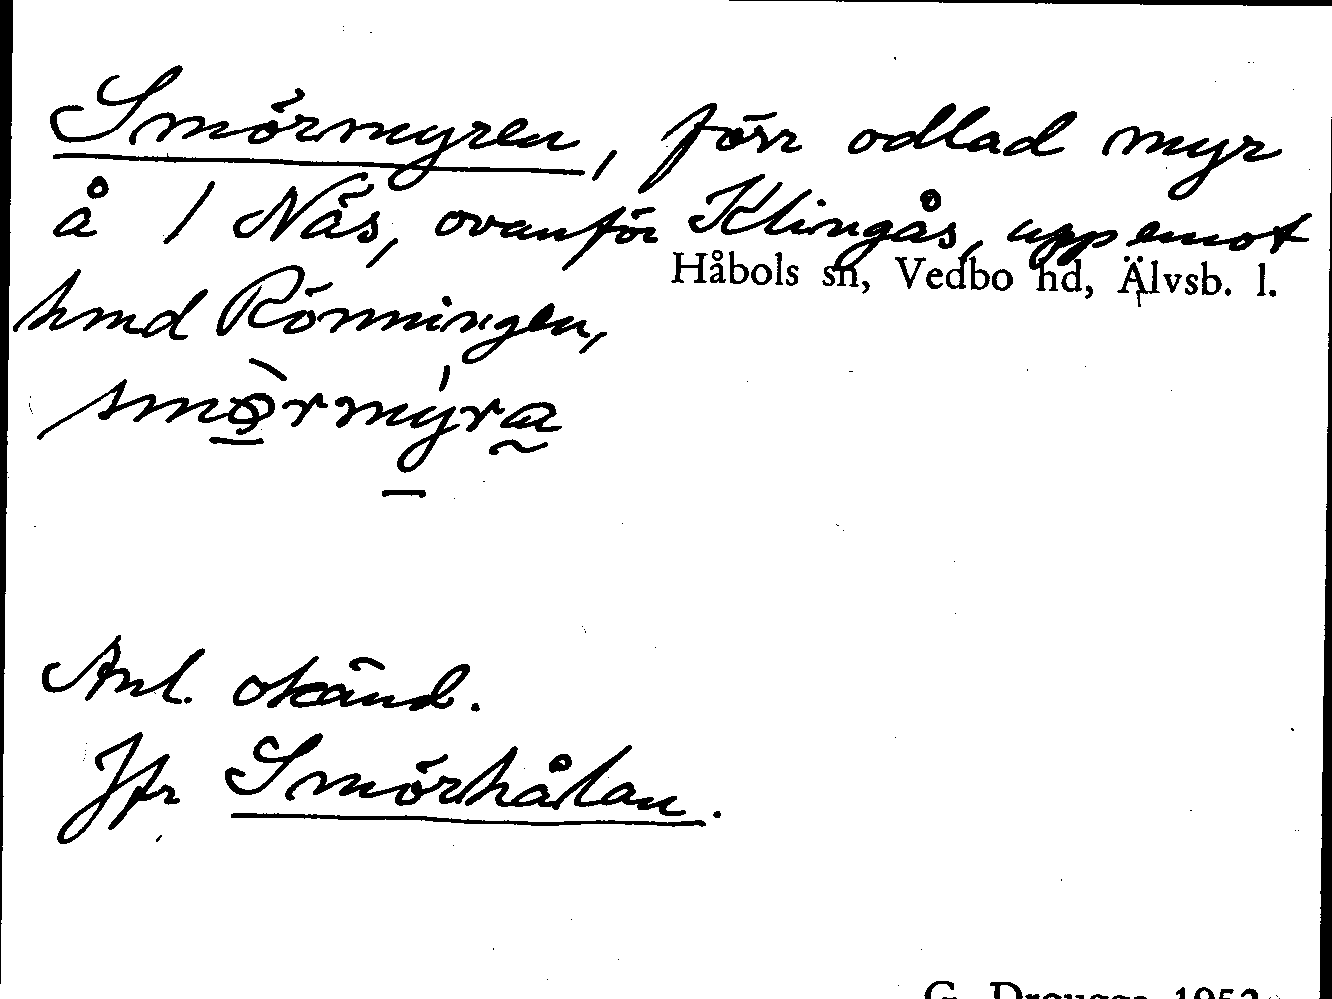 Smörmyren, förr odlad myr
å 1 Näs, ovanför Klingås, uppemot
Håbols sn, Vedbo hd, Älvsb. l.
hmd Rönningen,
smörmyra
Anl. okänd.
Jfr Smörhålan.
G. Drougge 1953